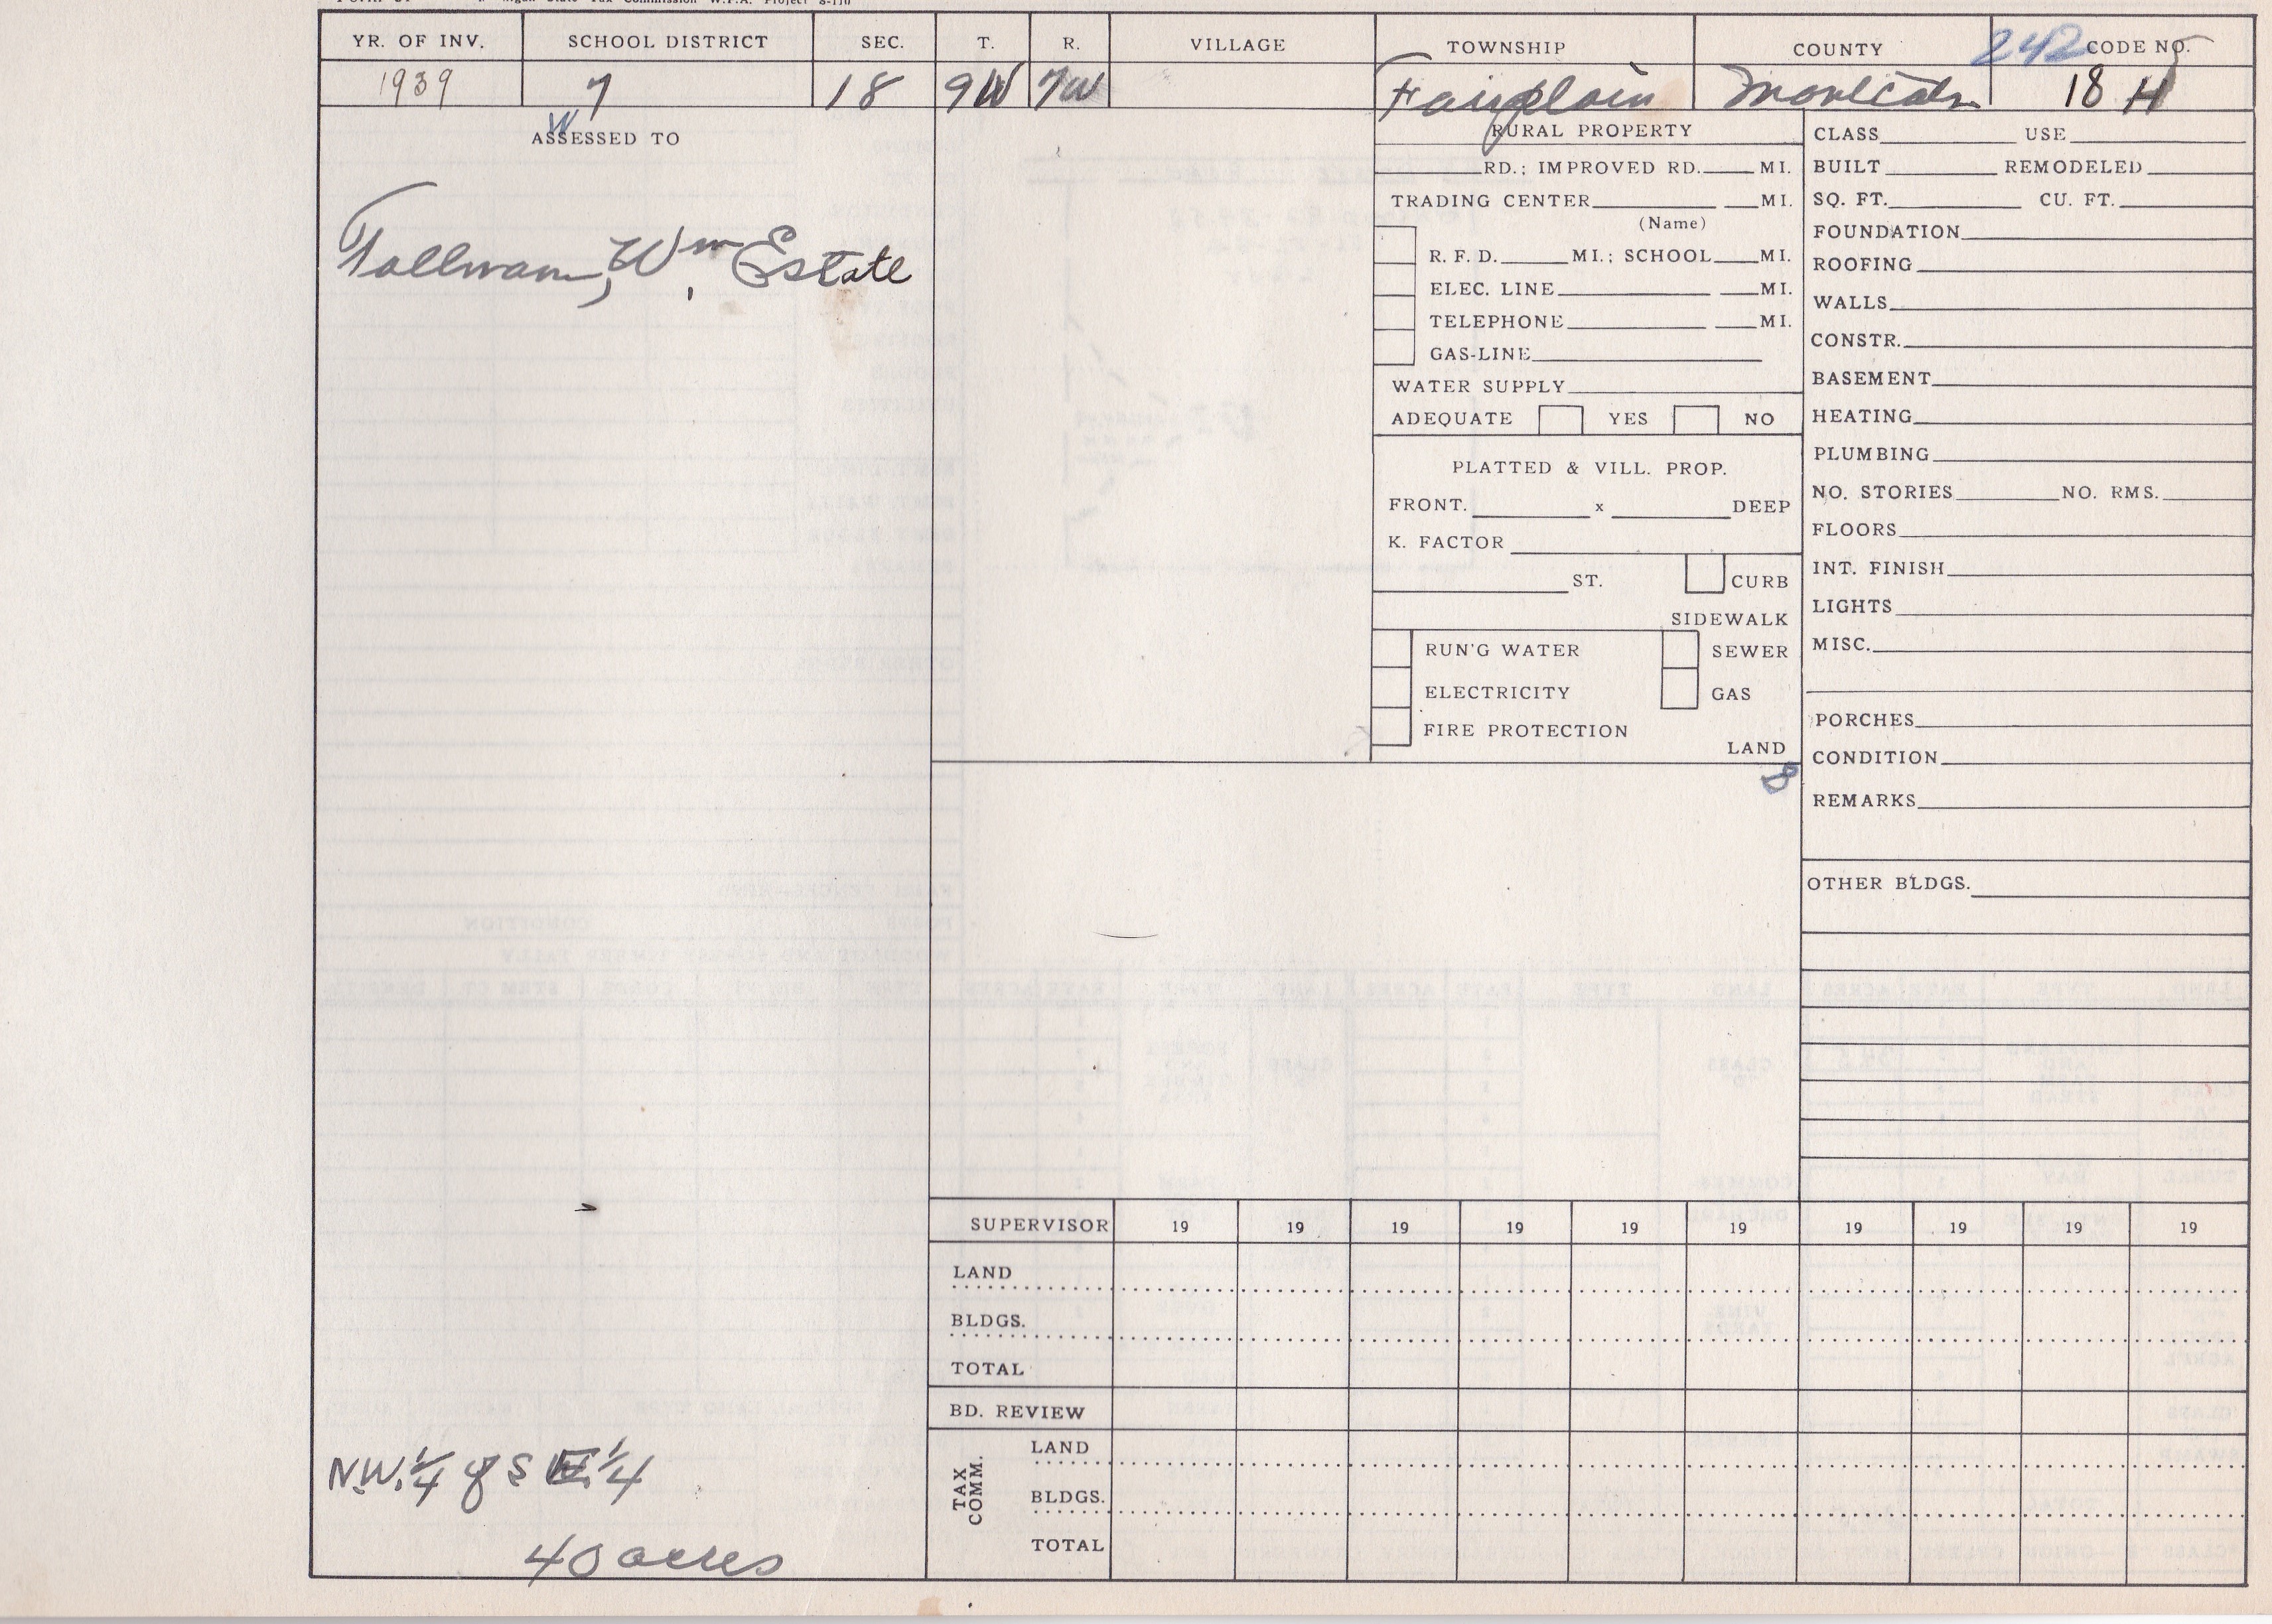 State Tax Commission W.P.A. Project
YR. OF INV. SCHOOL DISTRICT SEC. T. R. VILLAGE TOWNSHIP COUNTY 242 CODE NO.
1939 7 18 9W 7W Fairplain Montcalm 18 H
W
ASSESSED TO
Tallman, Wm Estate
NW.1/4 of S E.1/4
40 acres
RURAL PROPERTY
RD.; IMPROVED RD. MI.
TRADING CENTER MI.
(Name)
R. F. D. MI.; SCHOOL MI.
ELEC. LINE MI.
TELEPHONE MI.
GAS-LINE
WATER SUPPLY
ADEQUATE YES NO
PLATTED & VILL. PROP.
FRONT. x DEEP
K. FACTOR
ST. CURB
SIDEWALK
RUN'G WATER SEWER
ELECTRICITY GAS
FIRE PROTECTION
LAND
8
CLASS USE
BUILT REMODELED
SQ. FT. CU. FT.
FOUNDATION
ROOFING
WALLS
CONSTR.
BASEMENT
HEATING
PLUMBING
NO. STORIES NO. RMS.
FLOORS
INT. FINISH
LIGHTS
MISC.
PORCHES
CONDITION
REMARKS
OTHER BLDGS.
SUPERVISOR 19 19 19 19 19 19 19 19 19 19
LAND
BLDGS.
TOTAL
BD. REVIEW
TAX COMM.
LAND
BLDGS.
TOTAL